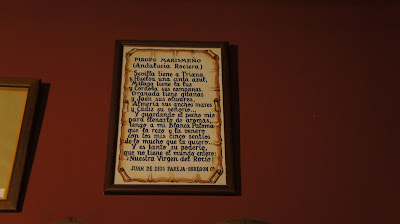 PIROPO MARISMEÑO
(Andalucia Rociera)
Sevilla tiene a Triana
y Huelva una cinta azul,
Málaga tiene la luz
y Córdoba sus campanas.
Granada tiene gitanas
y Jaén sus olivares,
Almería sus anchos mares
y Cádiz su señorío...
Y guardando el pecho mío
para llenarlo de aromas,
tengo a mi Blanca Paloma
que la rezo y la venero
con tos mis cinco sentíos
de lo mucho que la quiero.
Y es tanto su poderío,
que no tiene el mundo entero:
¡Nuestra Virgen del Rocío!
JUAN DE DIOS PAREJA-OBREGON